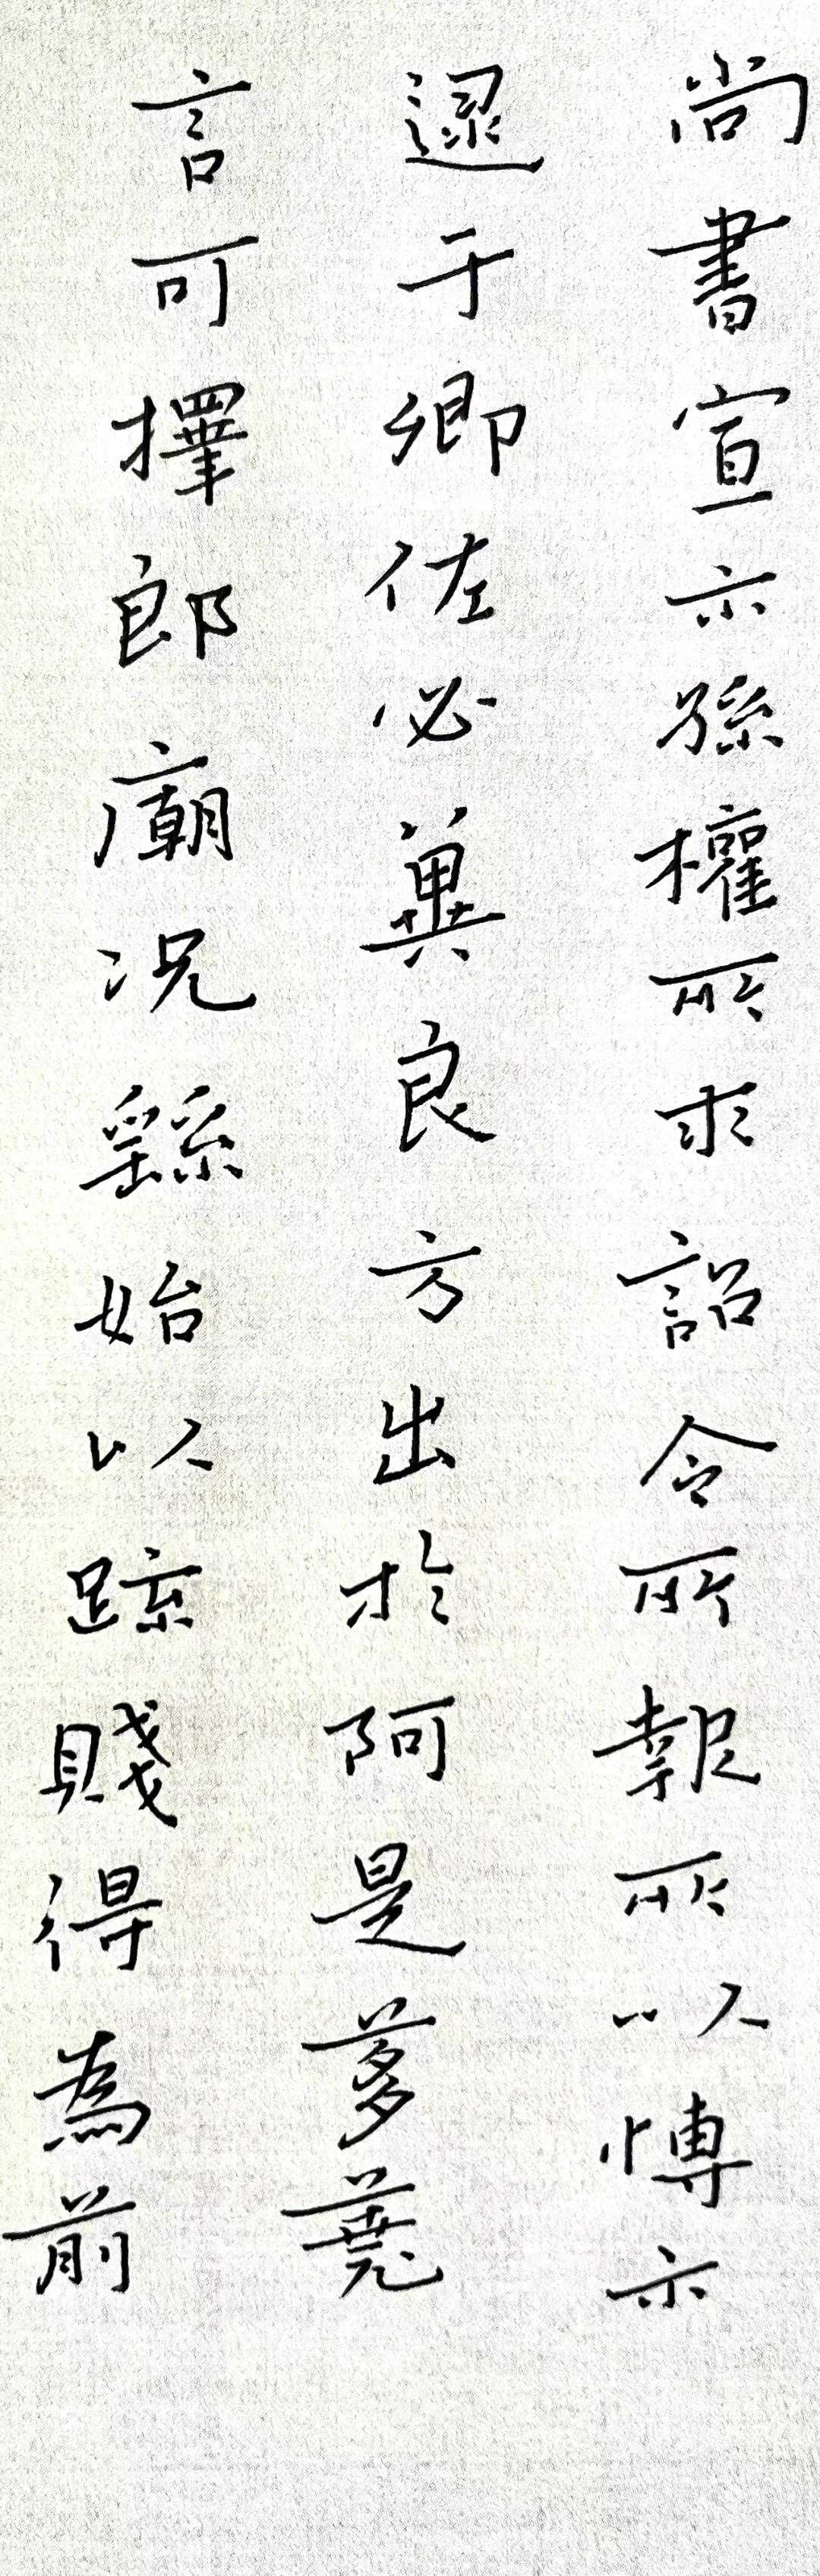 尚書宣示孫權所求詔令所報所以博示
逮于卿佐必冀良方出於阿是芻蕘
言可擇郎廟況繇始以疏賤得為前